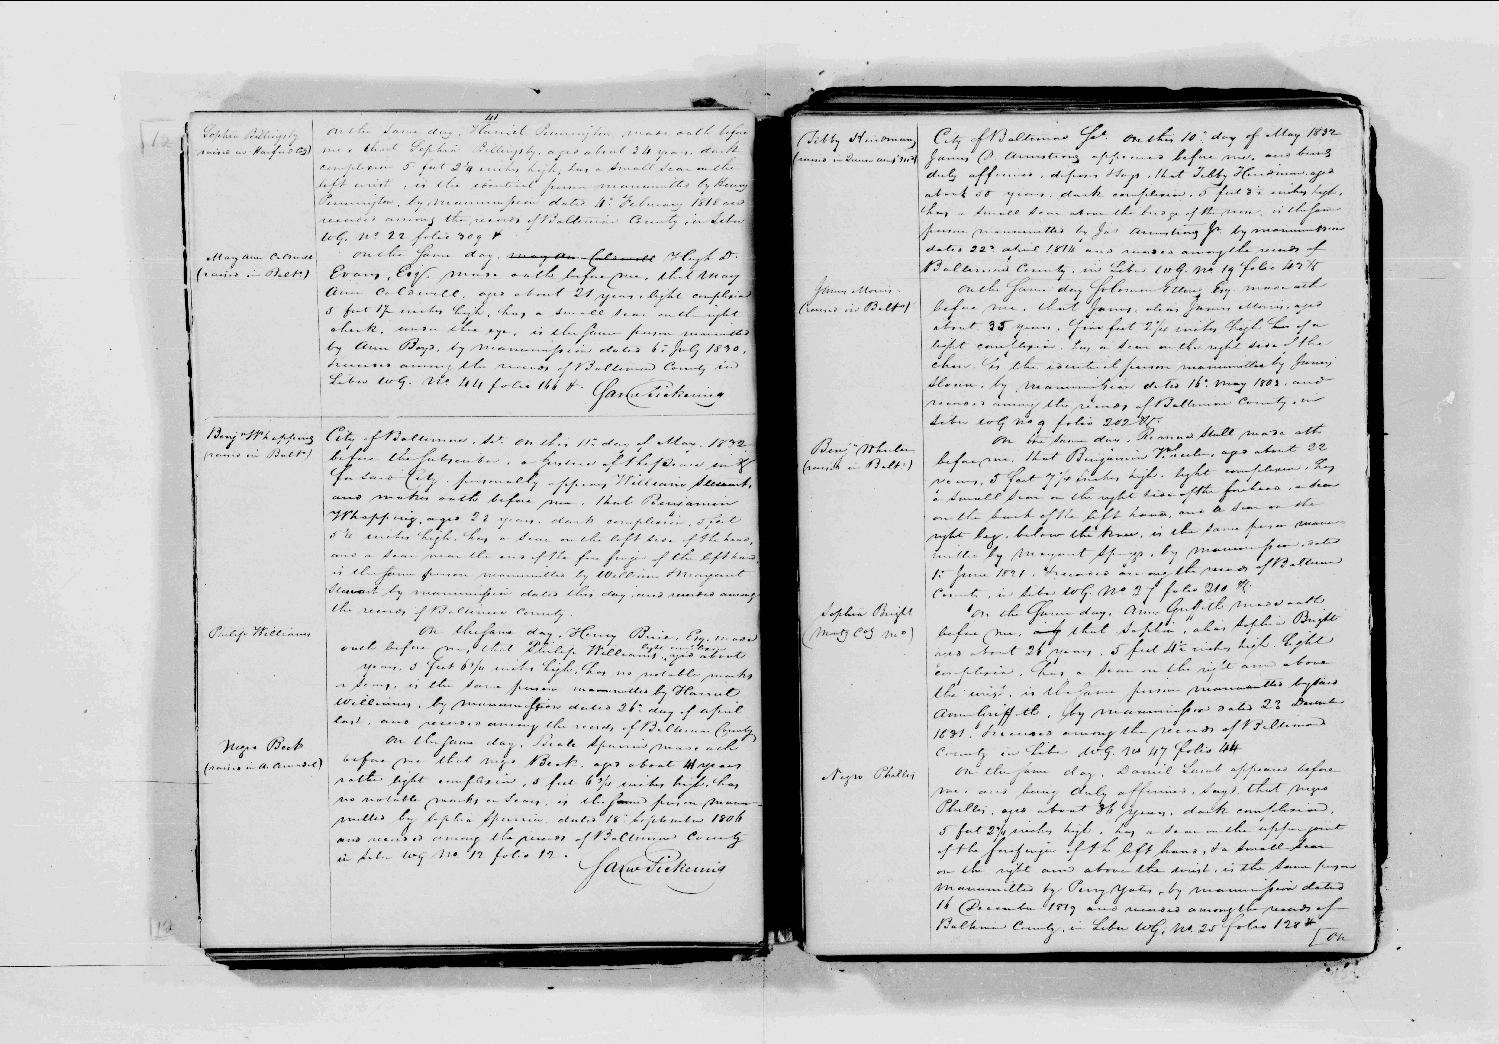 41
Sophia Billingsly
raised in Harford Cty)
on the same day, Harriet Pennington made oath before
me, that Sophia Billingsly, aged about 34 years, dark
complexion 5 feet 2¼ inches high, has a small scar on the
left wrist, is the identical person manumitted by Henry
Pennington, by manumission dated 4th February 1818 and
recorded among the records of Baltimore County, in Liber
WG. No 22 folio 309 &
Mary Ann Caldwell
(raised in Balto)
on the same day, Mary Ann Caldwell Hugh D.
Evans, Esq. made oath before me, that Mary
Ann Caldwell, aged about 21 years, light complexion
5 feet inches high, has a small scar on the right
cheek, under the eye, is the same person manumitted
by Ann Boyd, by manumission dated 6th July 1830,
recorded among the records of Baltimore County in
Liber WG. No 44 folio 166 &. Jas. Pickering
Benjn Whapping
(raised in Balto)
City of Baltimore, Sct. on this 11th day of May, 1832
before the Subscriber, a Justice of the Peace in &
for said City, personally appears William Stewart
and makes oath before me, that Benjamin
Whapping, aged 22 years, dark complexion, 5 feet
5¼ inches high, has a scar on the left side of the head,
and a scar near the end of the fore finger of the left hand
is the same person manumitted by William & Margaret
Stewart by manumission dated this day, and recorded among
the records of Baltimore County.
Philip Williams
on the same day, Henry Esq. made
oath before me, that Philip Williams, aged about
years, 5 feet 6¾ inches high, has no notable marks
or scars, is the same person manumitted by Harriet
Williams, by manumission dated 26th day of April
last, and recorded among the records of Baltimore County
Negro Beck
(raised in A. Arundel)
on the same day, Beale Spurrier made oath
before me that negro Beck, aged about 41 years
rather light complexion, 5 feet 6¾ inches high, has
no notable marks or scars, is the same person manu-
mitted by Sophia Spurrier, dated 18th September 1806
and recorded among the records of Baltimore County
in Liber WG No 12 folio 12. Jas. Pickering
Tibby Hindman
(raised in Queen Ann's Md)
City of Baltimore Sct. on this 10th day of May 1832
James D Armstrong appeared before me, and being
duly affirmed, deposes & says, that Tibby Hindman, aged
about 50 years, dark complexion, 5 feet inches high,
has a small scar above the bridge of the nose, is the same
person manumitted by Jas Armstrong Jr. by manumission
dated 22d April 1814 and recorded among the records of
Baltimore County, in Liber WG. No 19 folio
James Morris
(raised in Balto)
on the same day Solomon Etting Esq made oath
before me, that James, alias James Morris, aged
about 35 years, five feet 2¼ inches high has of a
light complexion, has a scar on the right side of the
chin, is the identical person manumitted by James
Sloan, by manumission dated 16th May 1803, and
recorded among the records of Baltimore County, in
Liber WG No 9 folio 202 &c.
Benjn Wheeler
(raised in Balto)
on the same day, Stull made oath
before me, that Benjamin Wheeler, aged about 22
years, 5 feet 7¼ inches high, light complexion, has
a small scar on the right side of the forehead, a scar
on the back of the left hand, and a scar on the
right leg, below the knee, is the same person manu-
mitted by Margaret, by manumission, dated
1st June 1821, & recorded among the records of Baltimore
County, in Liber WG No folio 210 &c.
Sophia Bright
(Montg Coy Md)
on the same day, Ann Griffith made oath
before me, that Sophia, alias Sophia Bright
aged about 26 years, 5 feet 4½ inches high, light
complexion, has a scar on the right arm above
the wrist, is the same person manumitted by said
Ann Griffith, by manumission dated 22 December
1831, recorded among the records of Baltimore
County in Liber WG. No 47 folio 44
Negro Phillis
on the same day, Daniel Lamb appeared before
me, and being duly affirmed, says, that negro
Phillis, aged about 36 years, dark complexion,
5 feet 2¼ inches high, has a scar on the upper joint
of the forefinger of the left hand, & a small scar
on the right arm above the wrist, is the same person
manumitted by Perry Yates, by manumission dated
16 December 1819 and recorded among the records of
Baltimore County, in Liber WG. No. 25 folio 128 &
[on